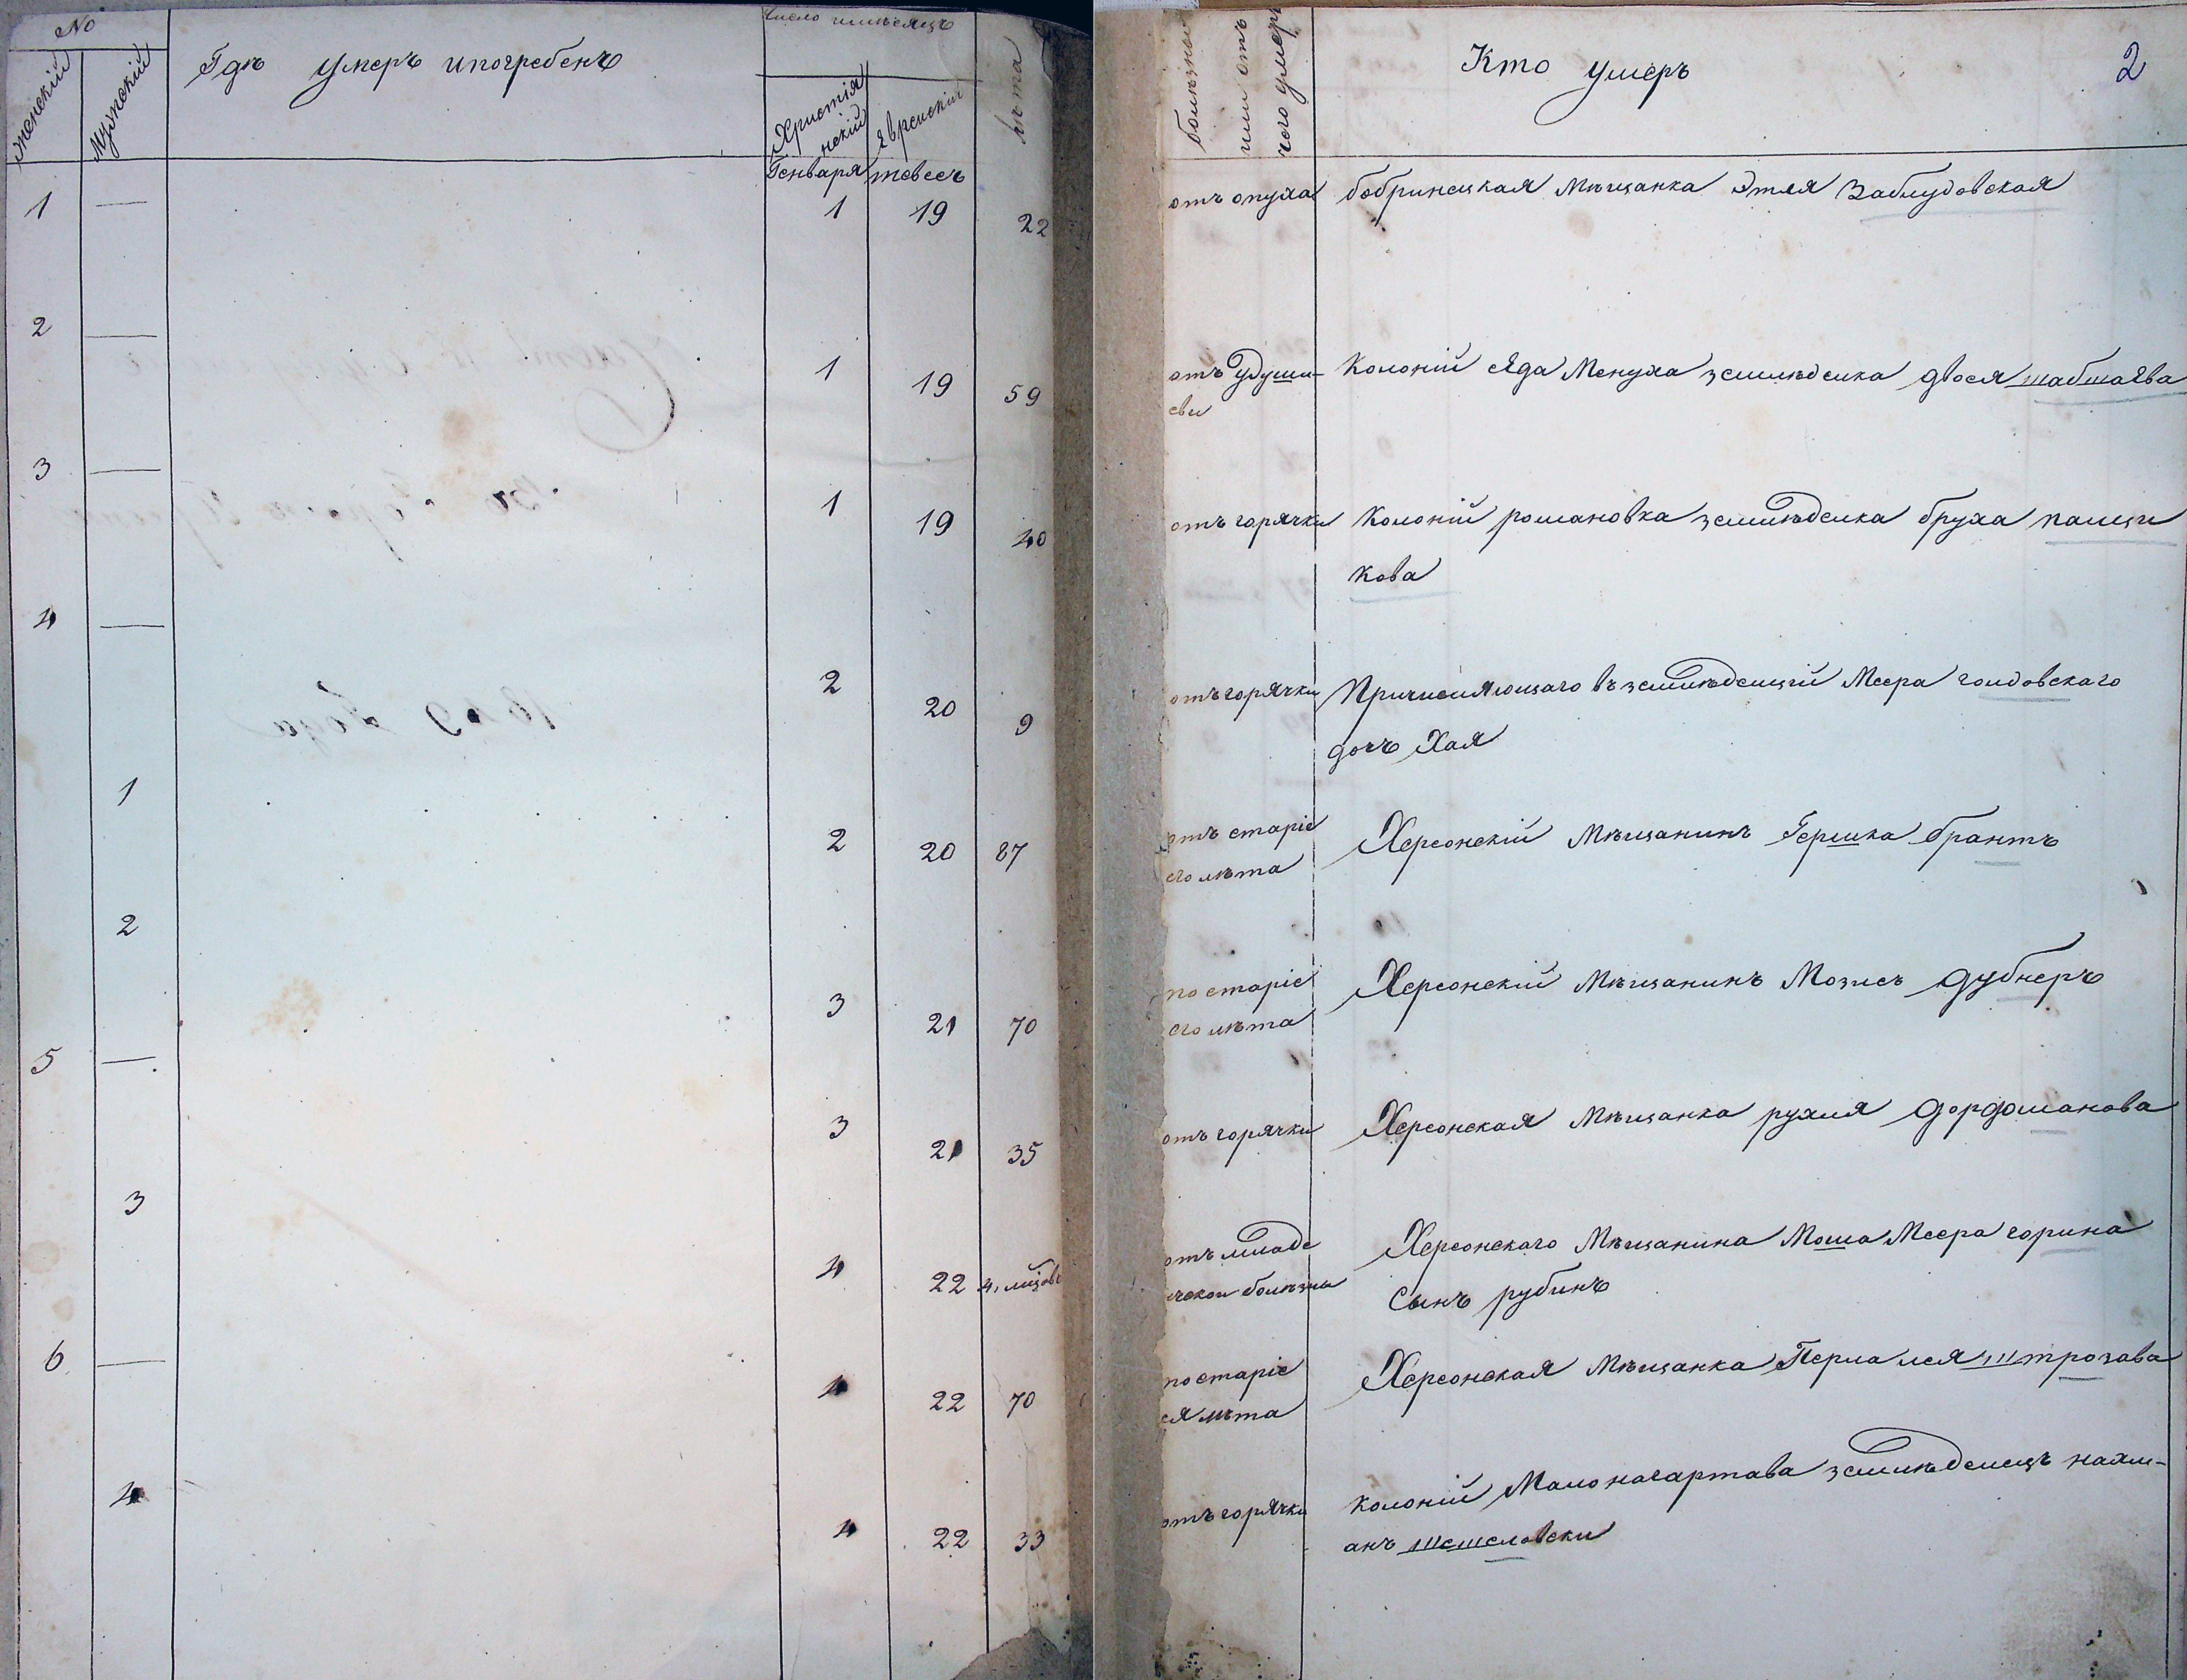 №
женскій
Мужскій
Гдѣ умеръ ипогребенъ
Число имѣсяцъ
Христія
нскій
Яврейскій
лѣта
Генваря
тевесъ
1 — 1 19 22
2 — 1 19 59
3 — 1 19 40
4 — 2 20 9
1 2 20 87
2 3 21 70
5 — 3 21 35
3 4 22 4, мѣцовъ
6 — 4 22 70
4 4 22 33
болѣзнь
или отъ
чего умеръ
Кто умеръ
2
отъ опуха бобринецкая Мѣщанка Этля Заблудовская
отъ удуши-
сви
Колоній сѣда Менуха земледѣлка двося шабшаѣва
отъ горячки Колоній романовка земледѣлка бруха палщи
кова
отъ горячки Причисляющаго въ земледѣлцій Меера голдовскаго
дочъ Хая
отъ старіе
его лѣта
Херсонскій Мѣщанинъ Гершка брантъ
по старіе
его лѣта
Херсонскій Мѣщанинъ Мозисъ дубнеръ
отъ горячки Херсонская Мѣщанка рухля дордоманова
отъ младе
ческои болѣзни
Херсонскаго Мѣщанина Моша Меера горина
Сынъ рубинъ
по старіе
ея лѣта
Херсонская Мѣщанка Перла лея штрозава
отъ горячки колоній Малонагартава земледѣлецъ нахм-
анъ шешеловски